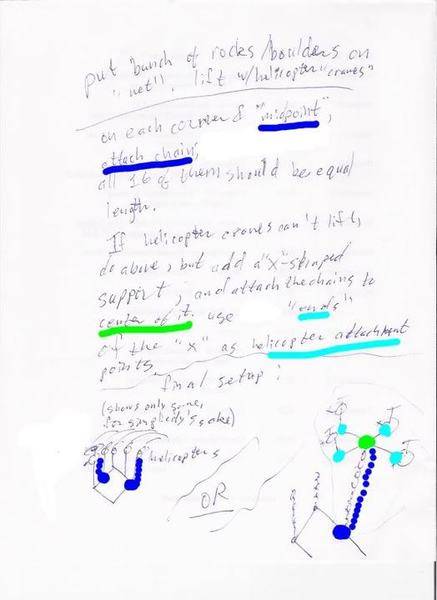 put bunch of rocks/boulders on
"net". lift w/helicopter "cranes"
on each corner & "midpoint",
attach chain;
all 16 of them should be equal
length.
If helicopter cranes can't lift,
do above, but add a "X"-shaped
support; and attach the chains to
center of it. use "ends"
of the "X" as helicopter attachment
points.
final setup:
(shows only some,
for simplicity's sake)
helicopters
OR